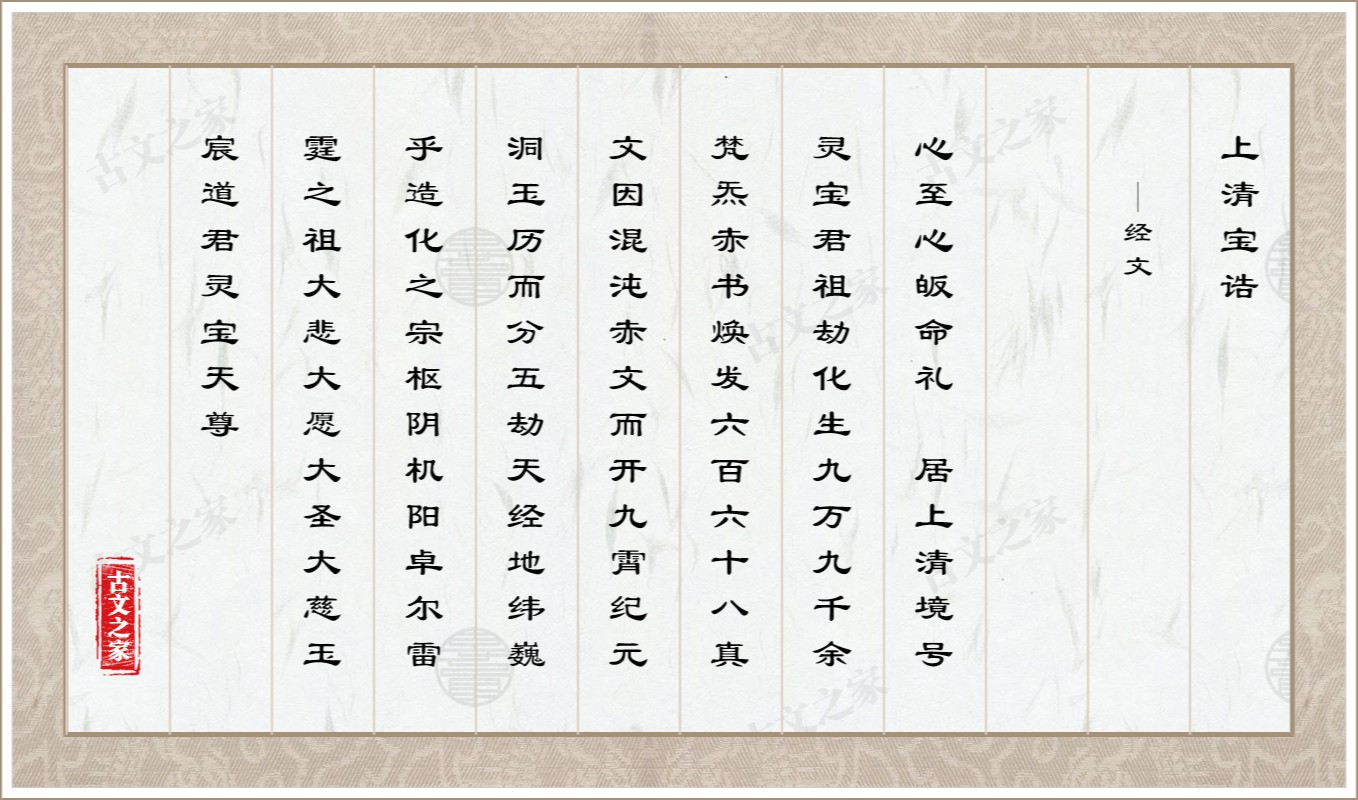 上清宝诰
—经文
心至心皈命礼 居上清境号
灵宝君祖劫化生九万九千余
梵炁赤书焕发六百六十八真
文因混沌赤文而开九霄纪元
洞玉历而分五劫天经地纬巍
乎造化之宗枢阴机阳卓尔雷
霆之祖大悲大愿大圣大慈玉
宸道君灵宝天尊
古文之家
古文之家
古文之家
古文之家
古文之家
古文之家
古文之家